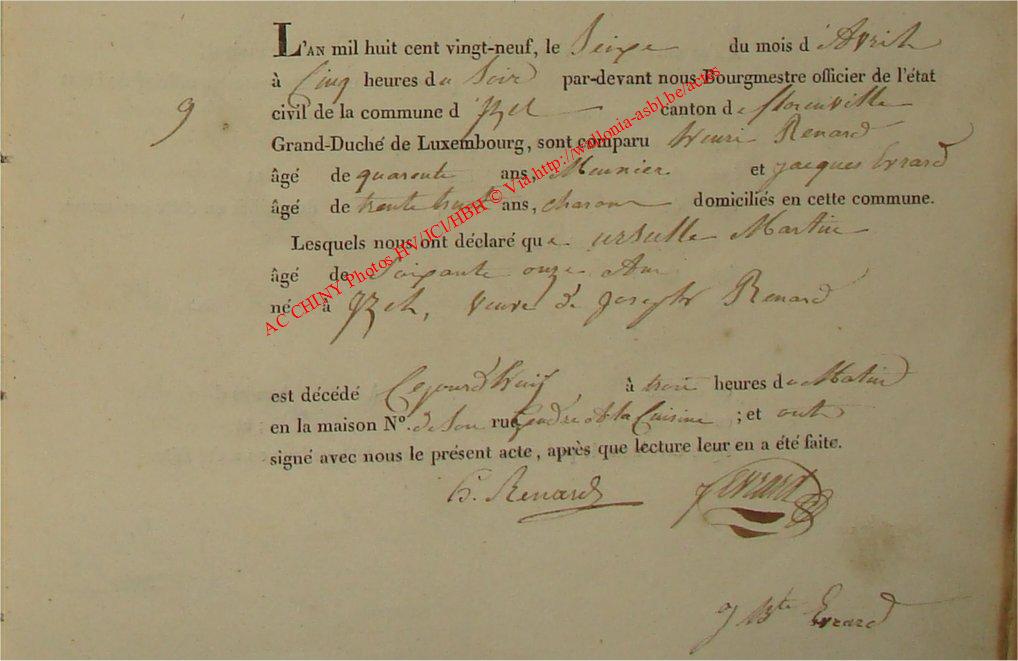 L'AN mil huit cent vingt-neuf, le Seize du mois d'Avril
à Cinq heures du Soir par-devant nous Bourgmestre officier de l'état
9
civil de la commune d'Izel canton de florenville
Grand-Duché de Luxembourg, sont comparu henri Renard
âgé de quarente ans, Meunier et jacques Evrard
âgé de trente ans, charon domiciliés en cette commune.
Lesquels nous ont déclaré que ursulle Martin
âgé de Soixante onze Ans
né à Izel, veuve de joseph Renard
est décédé Cejourd'huy à trois heures du Matin
en la maison N°. de Son rue Gendre à la Cuisine ; et ont
signé avec nous le présent acte, après que lecture leur en a été faite.
h. Renard j Evrard
j Bte Evrard
AC CHINY Photos HV/JCl/HBH © Via http://wallonia-asbl.be/actes